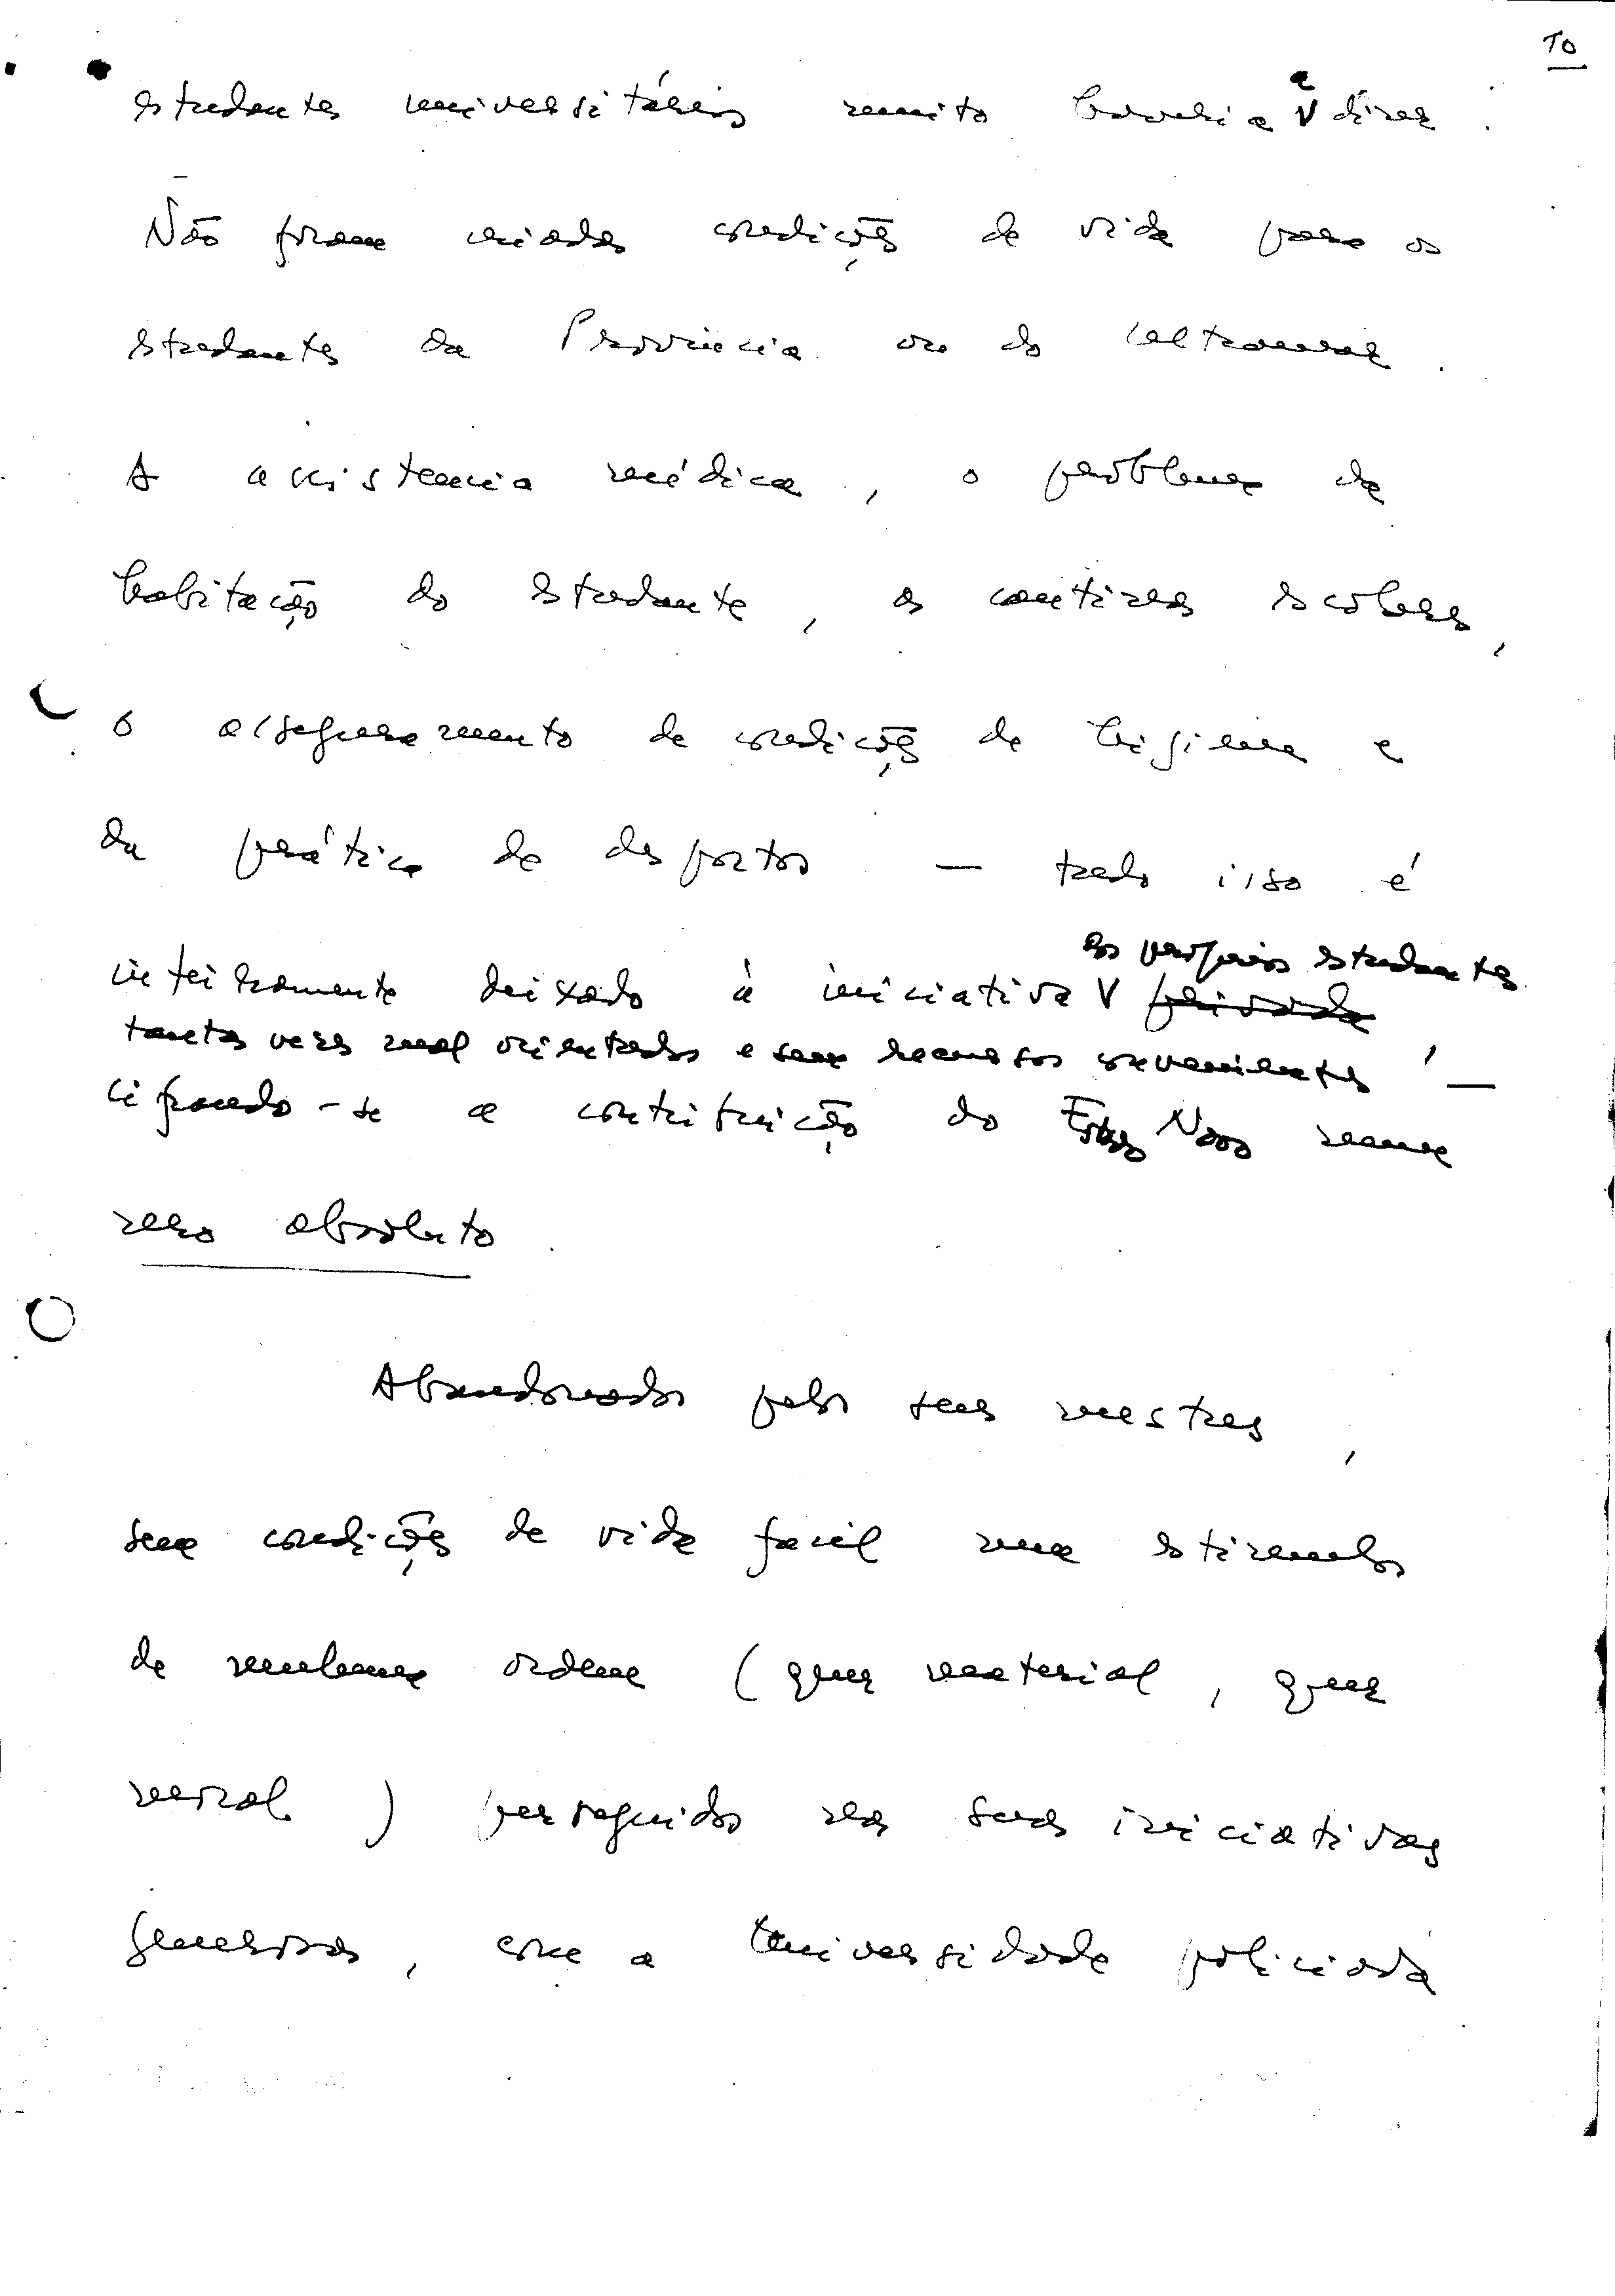 10
estudantes universitários muito haveria a dizer.
Não foram criadas condições de vida para os
estudantes da Província ou do Ultramar.
A assistencia médica, o problema da
habitação do estudante, as cantinas escolares,
o asseguramento de condições de higiene e
da prática de desportos — tudo isso é
dos próprios estudantes
inteiramente deixado à iniciativa privada
tantas vezes mal orientados e sem recursos convenientes, —
cifrando-se a contribuição do Estado Novo num
zero absoluto.
Abandonados pelos seus mestres,
sem condições de vida facil nem estimulos
de nenhuma ordem (quer material, quer
moral) perseguidos nas suas iniciativas
generosas, com a Universidade policiada